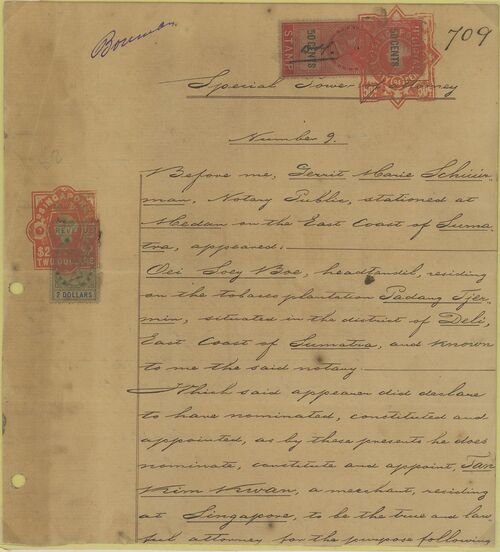 Bowman
709
50 CENTS
50 CENTS
STAMP
Special Power of Attorney
SINGAPORE
REVENUE
$2
TWO DOLLARS
2 DOLLARS
Number 9.
Before me, Gerrit Marie Schuur-
man, Notary Public, stationed at
Medan on the East Coast of Suma-
tra, appeared:
Oei Soey Boe, headtandil, residing
on the tobaccoplantation Padang Tjer-
min, situated in the district of Deli,
East Coast of Sumatra, and known
to me the said notary.
Which said appearer did declare
to have nominated, constituted and
appointed, as by these presents he does
nominate, constitute and appoint, Tan
Kim Kwan, a merchant, residing
at Singapore, to be the true and law-
ful attorney for the purpose following